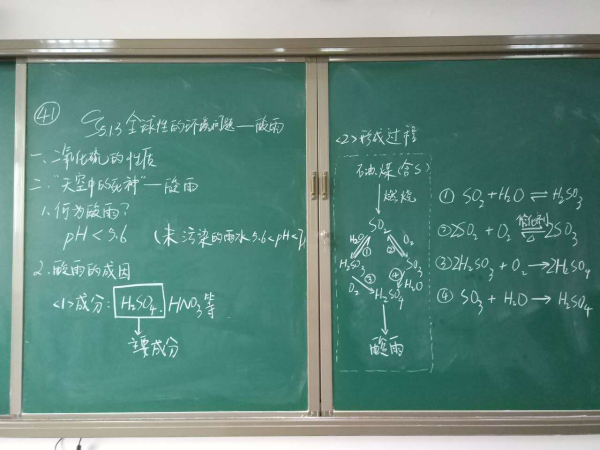 41
§5.13 全球性的环境问题——酸雨
一、二氧化硫的性质
二、"天空中的死神"——酸雨
1、何为酸雨?
pH<5.6 (未污染的雨水5.6<pH<7)
2、酸雨的成因
<1>成分: H₂SO₄、HNO₃等
主要成分
<2>形成过程
石油煤(含S)
燃烧
SO₂
H₂O ① ② O₂
H₂SO₃ ③ ④ SO₃
O₂ H₂SO₄ H₂O
酸雨
① SO₂+H₂O⇌H₂SO₃
②2SO₂+O₂ 催化剂 ⇌ △ 2SO₃
③2H₂SO₃+O₂→2H₂SO₄
④ SO₃+H₂O→H₂SO₄